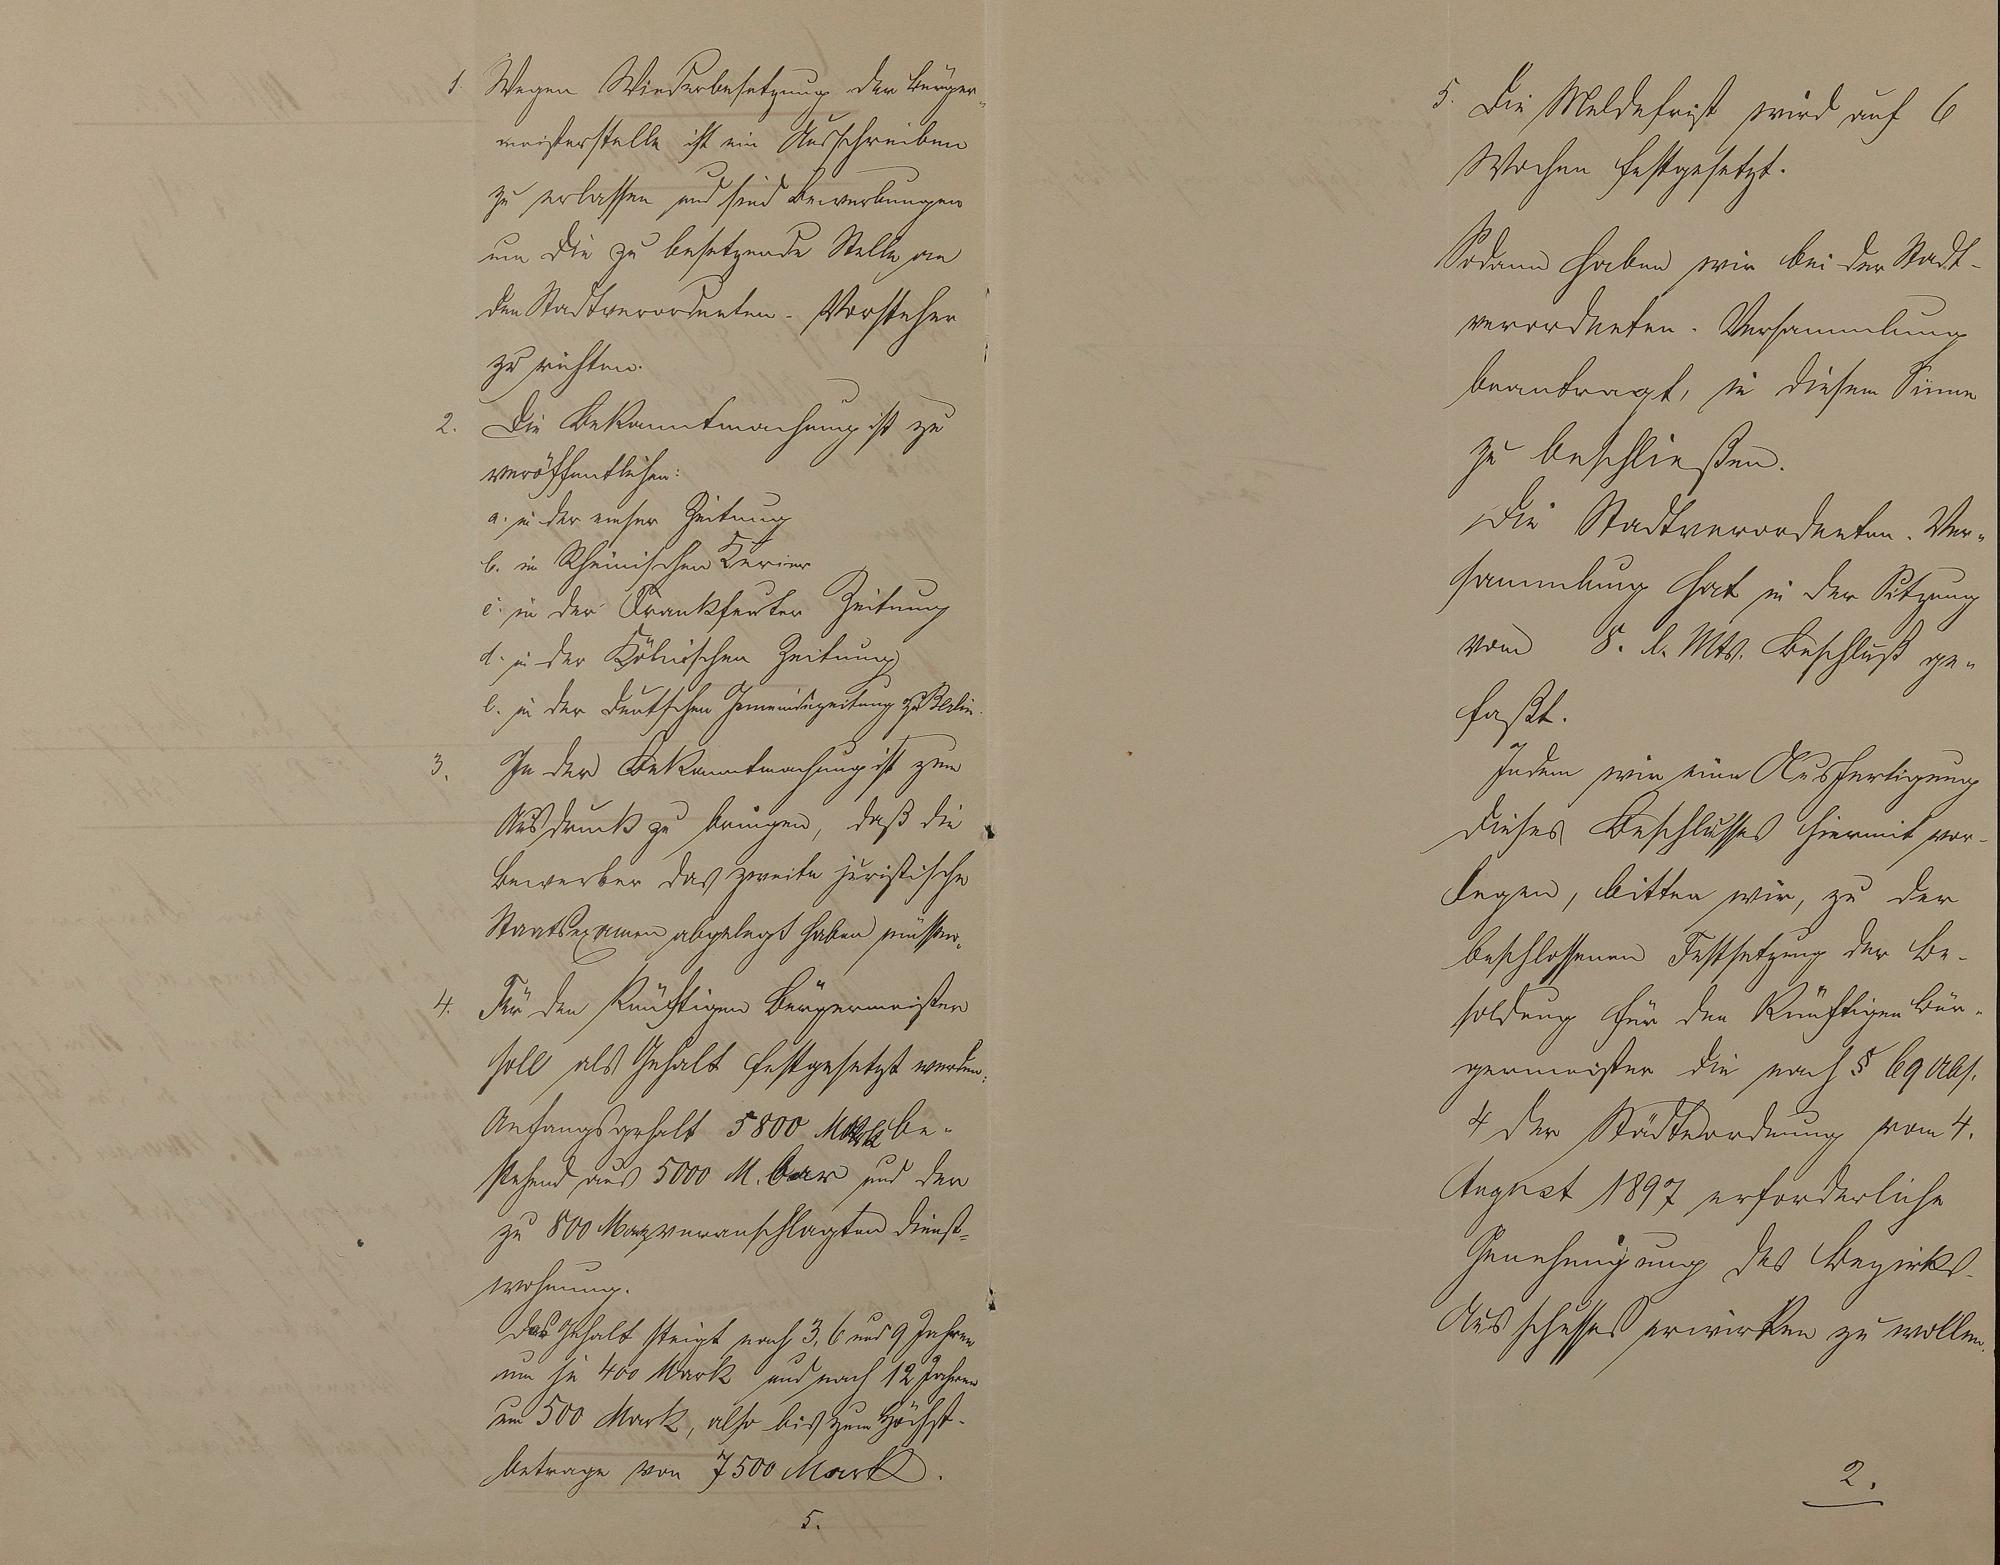 1. Wegen Wiederbesetzung der Bürger-
meisterstelle ist ein Ausschreiben
zu erlassen und sind Bewerbungen
um die zu besetzende Stelle an
den Stadtverordneten-Vorsteher
zu richten.
2. Die Bekanntmachung ist zu
veröffentlichen:
a. in der emser Zeitung
b. im Rheinischen Kurier
c. in der Frankfurter Zeitung
d. in der Kölnischen Zeitung
e. in der deutschen Gemeindezeitung zu Berlin.
3. In der Bekanntmachung ist zum
Ausdruck zu bringen, daß die
Bewerber das zweite juristische
Staatsexamen abgelegt haben müssen.
4. Für den künftigen Bürgermeister
soll als Gehalt festgesetzt werden:
Anfangsgehalt 5800 Mark be-
stehend aus 5000 M. bar und der
zu 800 Mark veranschlagten Dienst-
wohnung.
Das Gehalt steigt nach 3, 6 und 9 Jahren
um je 400 Mark und nach 12 Jahren
um 500 Mark, also bis zum Höchst-
betrage von 7500 Mark.
5.
5. Die Meldefrist wird auf 6
Wochen festgesetzt.
Sodann haben wir bei der Stadt-
verordneten-Versammlung
beantragt, in diesem Sinne
zu beschließen.
Die Stadtverordneten-Ver-
sammlung hat in der Sitzung
vom 8. d. Mts. Beschluß ge-
faßt.
Indem wir eine Ausfertigung
dieses Beschlusses hiermit vor-
legen, bitten wir, zu der
beschlossenen Festsetzung der Be-
soldung für den künftigen Bür-
germeister die nach § 69 Abs.
4 der Städteordnung vom 4.
August 1897 erforderliche
Genehmigung des Bezirks-
Ausschusses erwirken zu wollen.
2.